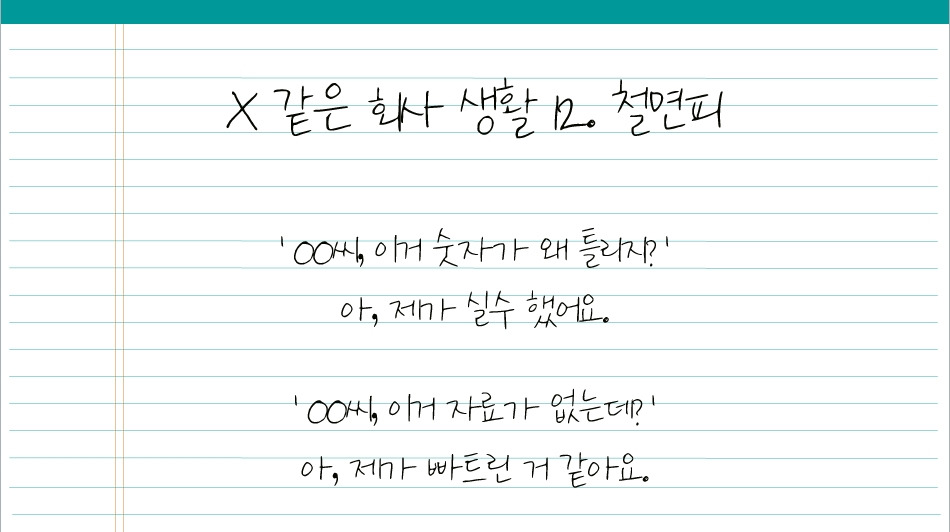 X 같은 회사 생활 12. 철면피
'OO씨, 이거 숫자가 왜 틀리지?'
아, 제가 실수 했어요.
'OO씨, 이거 자료가 없는데?'
아, 제가 빠트린 거 같아요.